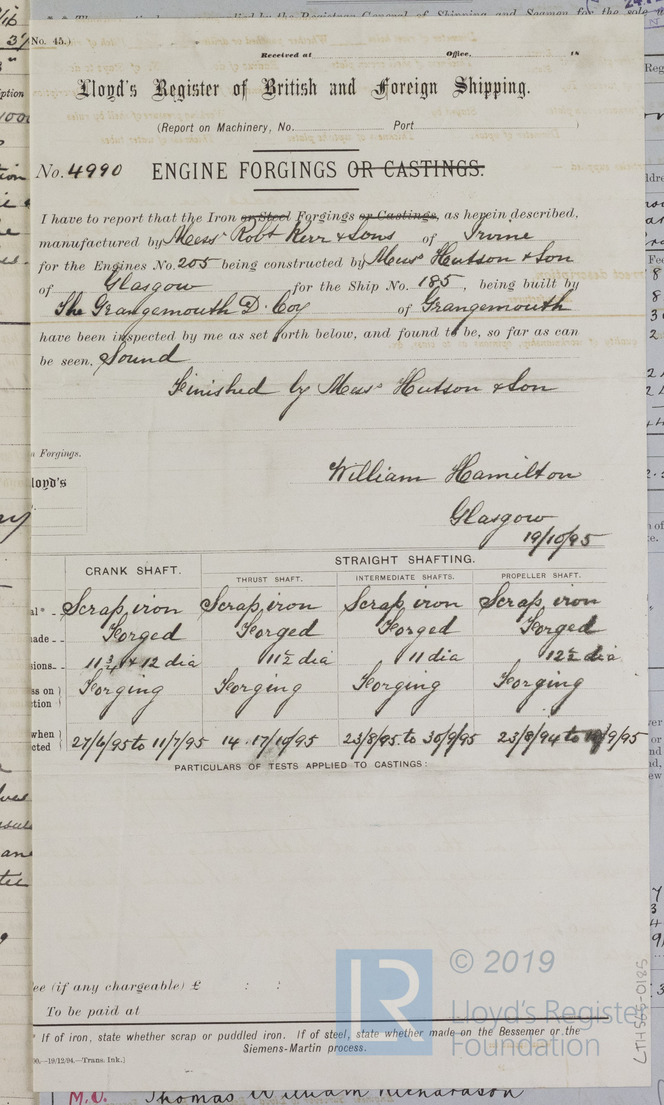 No. 45.)
Received at Office, 18
Lloyd's Register of British and Foreign Shipping.
(Report on Machinery, No. Port )
No. 4990 ENGINE FORGINGS OR CASTINGS.
I have to report that the Iron or Steel Forgings or Castings, as herein described,
manufactured by Messrs Robt Kerr & Sons of Irvine
for the Engines No. 205 being constructed by Messrs Hutson & Son
of Glasgow for the Ship No. 185, being built by
The Grangemouth D. Coy of Grangemouth
have been inspected by me as set forth below, and found to be, so far as can
be seen, Sound
Finished by Messrs Hutson & Son
Forgings.
loyd's
William Hamilton
Glasgow
19/10/95
CRANK SHAFT. STRAIGHT SHAFTING.
THRUST SHAFT. INTERMEDIATE SHAFTS. PROPELLER SHAFT.
al* Scrap iron Scrap iron Scrap iron Scrap iron
ade Forged Forged Forged Forged
sions 11 3/4 & 12 dia 11 1/2 dia 11 dia 12 1/2 dia
ss on Forging Forging Forging Forging
ction
when
cted 27/6/95 to 11/7/95 14. 17/10/95 23/8/95 to 30/9/95 23/8/94 to 9/95
PARTICULARS OF TESTS APPLIED TO CASTINGS:
ee (if any chargeable) £ : :
To be paid at
* If of iron, state whether scrap or puddled iron. If of steel, state whether made on the Bessemer or the
Siemens-Martin process.
00,—19/12/94.—Trans. Ink.]
LR © 2019
Lloyd's Register
Foundation
Thomas William Richardson